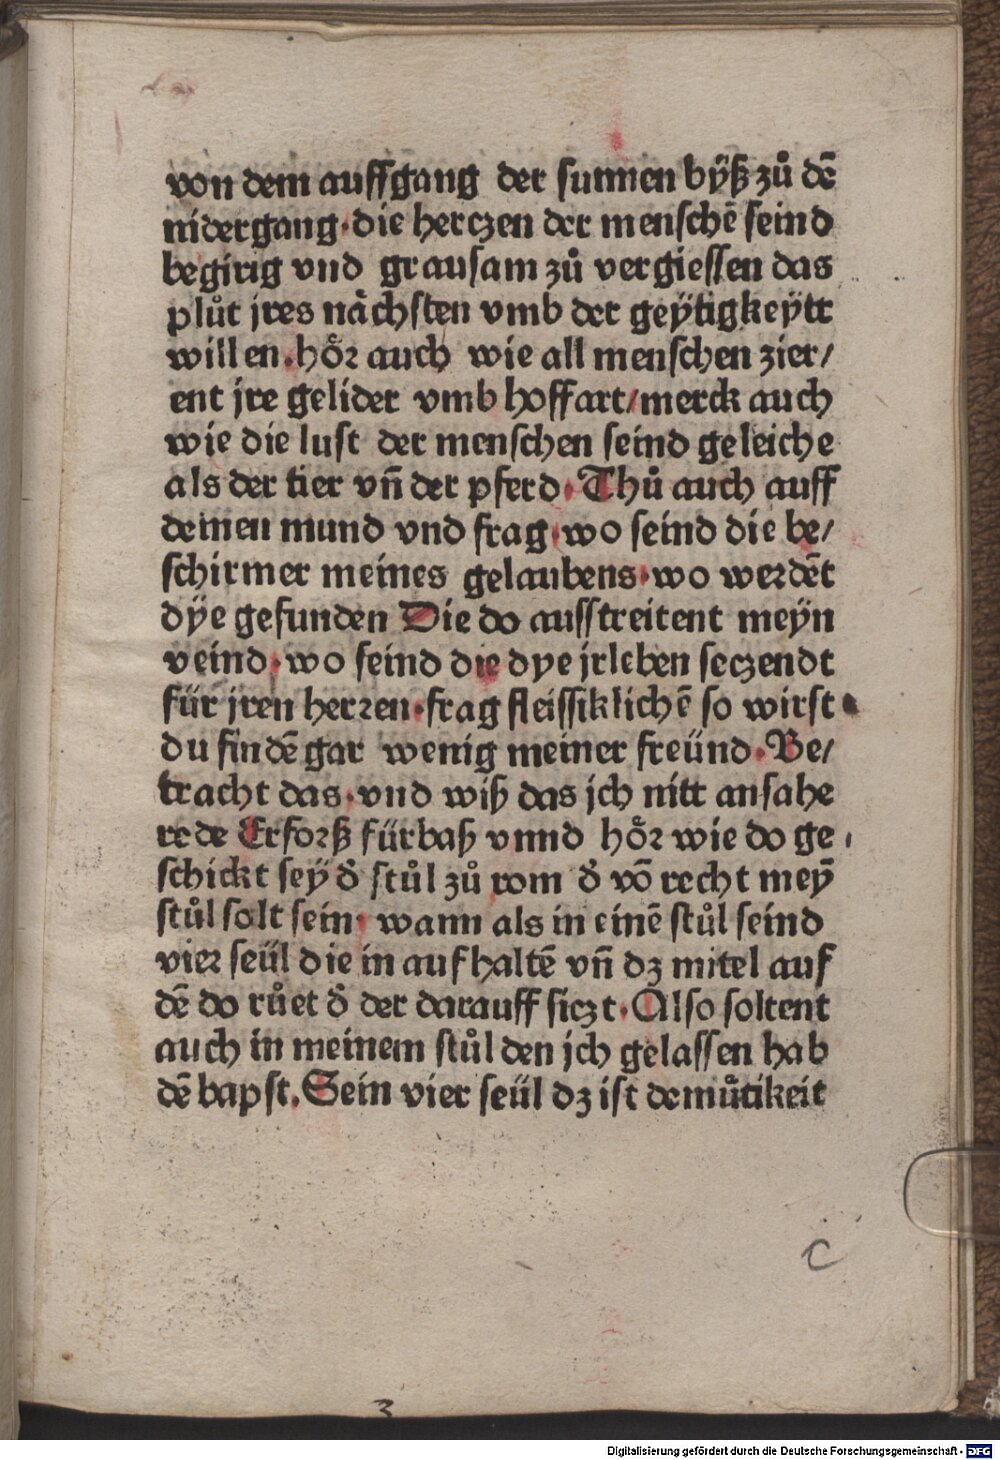 von dem auffgang der sunnen byß zů dē
nidergang·die herczen der menschē seind
begirig vnd grausam zů vergiessen das
plůt jres nächsten vmb der geÿtigkeÿtt
willen.hör auch wie all menschen zier/
ent jre gelider vmb hoffart/merck auch
wie die lust der menschen seind geleiche
als der tier vn̄ der pferd·Thů auch auff
deinen mund vnd frag·wo seind die be/
schirmer meines gelaubens·wo werdēt
dÿe gefunden Die do ausstreitent meÿn
veind·wo seind die dye jrleben seczendt
für jren herren·frag fleissiklichē so wirst
du findē gar wenig meiner freünd·Be/
tracht das·vnd wiß das jch nitt ansahe
rede Erforß fürbaß vnnd hör wie do ge
schickt seÿ d̄ stůl zů rom d̄ vō recht meȳ
stůl solt sein· wann als in einē stůl seind
vier seül die in aufhaltē vn̄ dz mitel auf
dē do růet d̄ der darauff siczt·Also soltent
auch in meinem stůl den jch gelassen hab
dē bapst.Sein vier seül dz ist demůtikeit
c
3
Digitalisierung gefördert durch die Deutsche Forschungsgemeinschaft - DFG